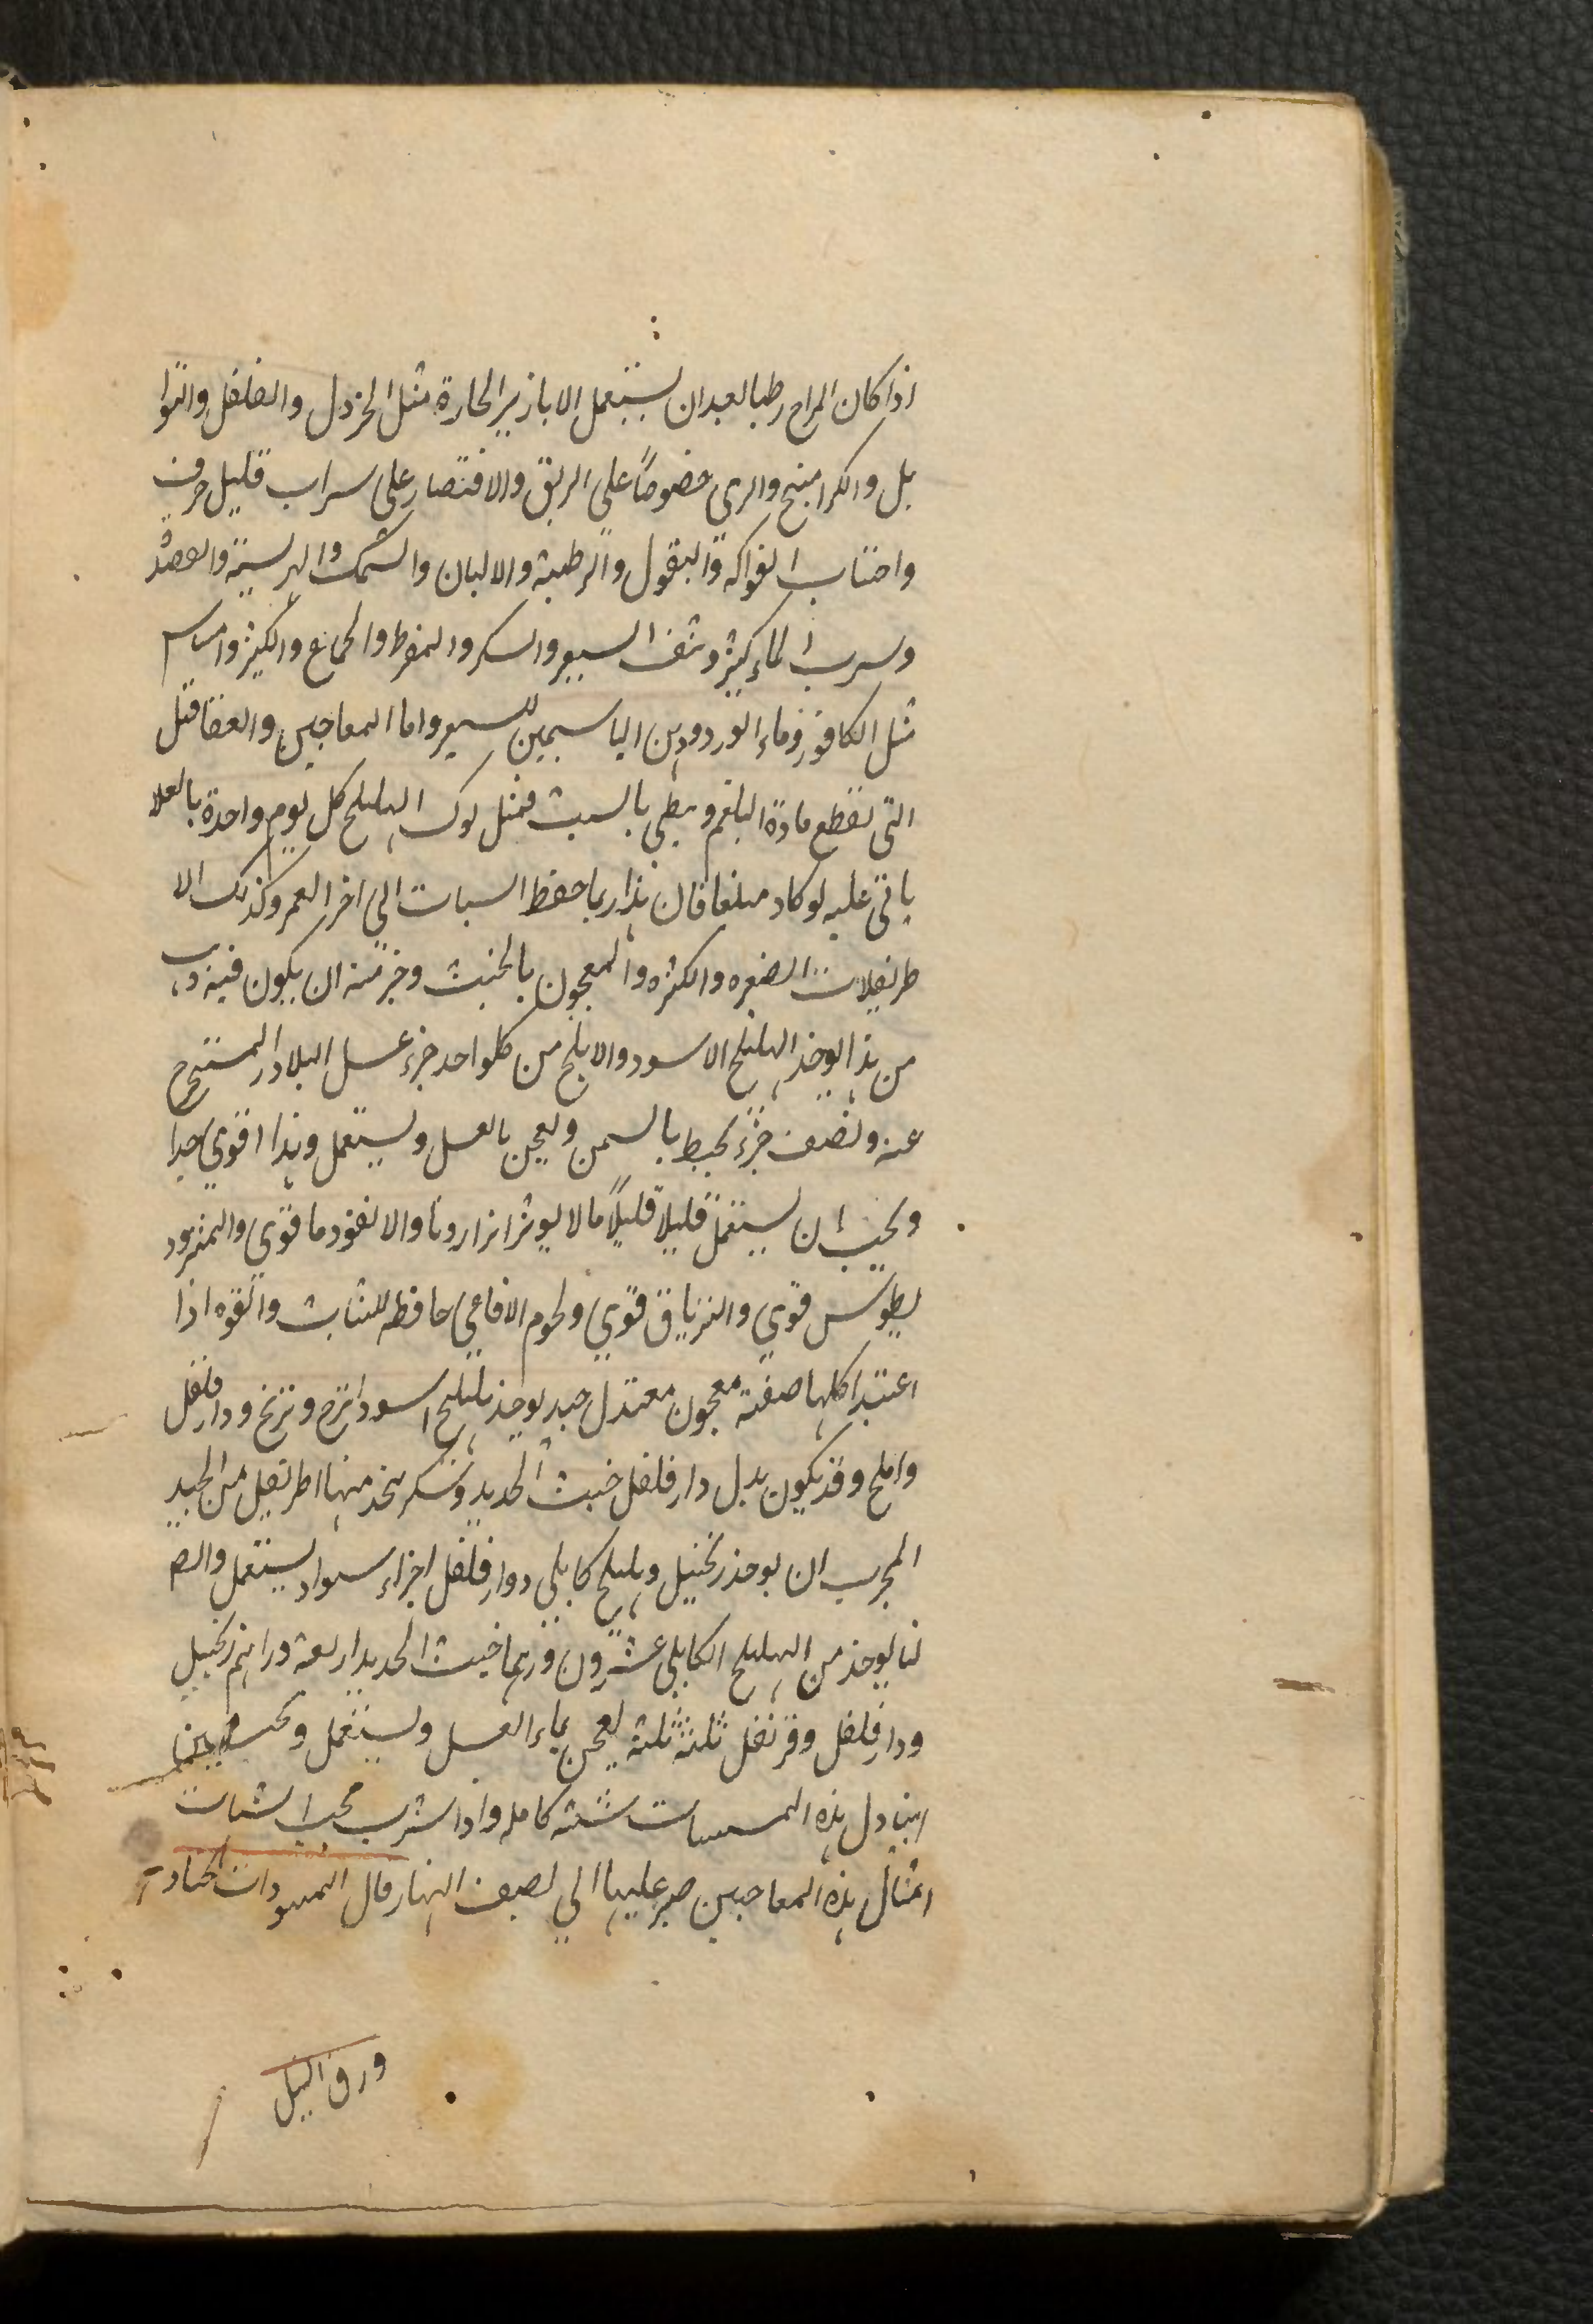 اذا كان المزاج رطبا لعبدان يستعمل الابازير الحارة مثل الخردل والفلفل والتوا
بل والكرامنج والري خصوصاً على الريق والاقتصار على سراب قليل صرف
واجتناب الفواكه والبقول والرطبة والالبان والسمك والهريسة والعصد
وسرب الماء كثير ونتف السيعر والسكر والمفرط والجماع والكثير واسام
مثل الكافور وماء الورد ودهن الياسمين للسعر واما المعاجين والعقاقىل
التى تقطع مادة البلغم وببطى بالسبب فمثل لوك الهليلج كل يوم واحدة بالعلا
ياتى عليه لوكاد مبلغا فان هذا ربما حفظ السبات الى اخر العمر وكذلك الا
طريفلات الصغره والكثره والمعجون بالخبث وخير منه ان يكون فيه ذهب
من هذا يوخذ الهليلج الاسود والابلج من كلواحد جزء عسل البلادر المستخرج
عنه ونصف جزء يخبط بالسمن ويعجن بالعسل ويستعمل وهذا اقوي جدا
ويجب ان يستعمل قليلاً قليلاً مالا يوثر اثرا روبا والانفود ما قوى والمثرود
يطوس قوي والترياق قوي ولحوم الافاعي حافظه للشاب والقوه اذا
اعتيد اكلها صفة معجون معتدل جيد يوخذ هليلج اسود ابرج وبرنج ودار فلفل
واملج وقد يكون بدل دار فلفل خبث الحديد وسكر يتخذ منها اطريفل من الجيد
المجرب ان يوخذ زنجبيل وهليلج كابلي ودار فلفل اجزاء سواء يستعمل والص
لنا يوخذ من الهليلج الكابلي عشرون درهما خبث الحديد اربعة دراهم زنجبيل
ودار فلفل وقرنفل ثلثه ثلثه يعجن بماء العسل ويستعمل ويجب
ان يناول هذه المسات سنة كامله واذا شرب محب الشباب
امثال هذه المعاجين صبر عليها الي نصف النهار مال المسودات الحادة
ورق النيل